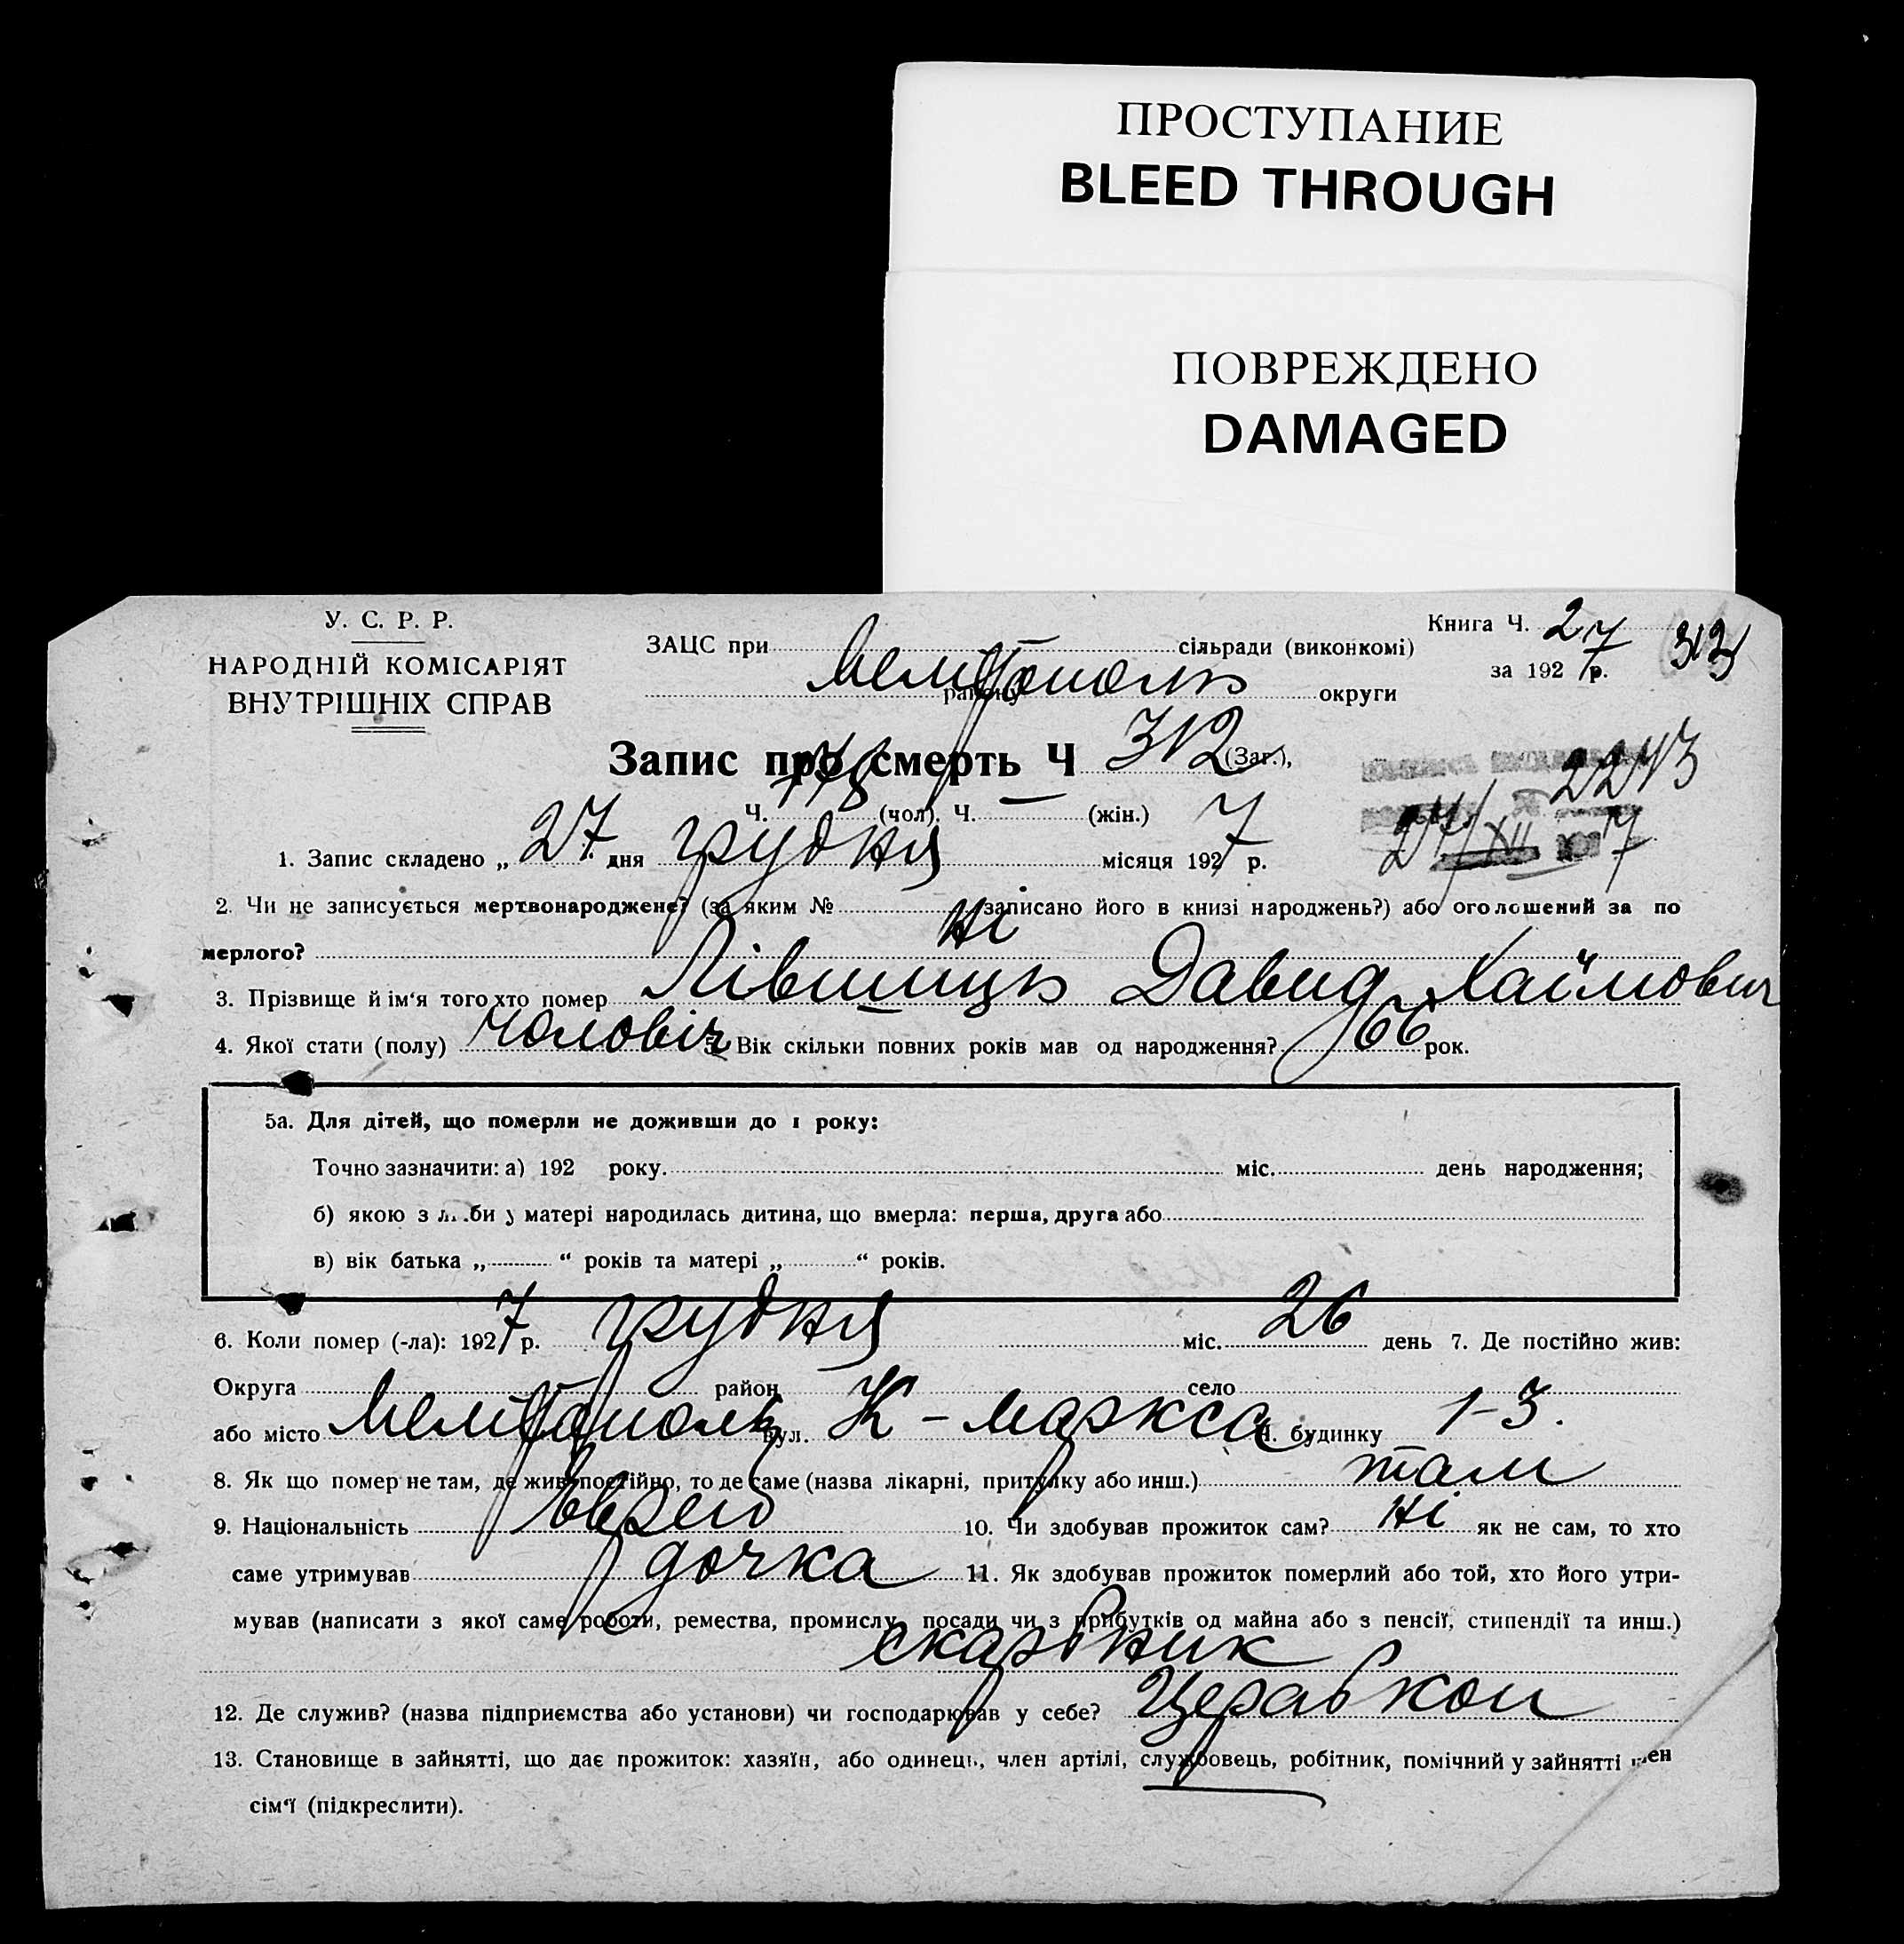 ПРОСТУПАНИЕ
BLEED THROUGH
ПОВРЕЖДЕНО
DAMAGED
У. С. Р. Р.
НАРОДНІЙ КОМІСАРІЯТ
ВНУТРІШНІХ СПРАВ
ЗАЦС при Мелітополь сільради (виконкомі)
району округи
Книга Ч. 27
за 1927 р.
313
Запис про смерть Ч 312 (Заг.),
Ч. 178 (чол). Ч. — (жін.)
2243
27/XII 7
1. Запис складено „ 27 дня грудня місяця 1927 р.
2. Чи не записується мертвонароджене? (за яким № записано його в книзі народжень?) або оголошений за по
мерлого? Ні
3. Прізвище й ім'я того хто помер Лівшиць Давид Хаїмович
4. Якої стати (полу) чоловіч 5. Вік скільки повних років мав од народження? 66 рок.
5а. Для дітей, що померли не доживши до 1 року:
Точно зазначити: а) 192 року. міс. день народження;
б) якою з матері народилась дитина, що вмерла: перша, друга або
в) вік батька „ “ років та матері „ “ років.
6. Коли помер (-ла): 1927 р. грудня міс. 26 день 7. Де постійно жив:
Округа район село
або місто Мелітополь вул. К-Маркса Ч. будинку 1-3.
8. Як що помер не там, де жив постійно, то де саме (назва лікарні, притулку або инш.) там
9. Національність Еврей 10. Чи здобував прожиток сам? Ні як не сам, то хто
саме утримував дочка 11. Як здобував прожиток померлий або той, хто його утри-
мував (написати з якої саме роботи, ремества, промислу, посади чи з прибутків од майна або з пенсії, стипендії та инш.)
скарбник
12. Де служив? (назва підприємства або установи) чи господарював у себе? Церабкоп
13. Становище в зайнятті, що дає прожиток: хазяїн, або одинець, член артілі, службовець, робітник, помічний у зайнятті член
сім'ї (підкреслити).